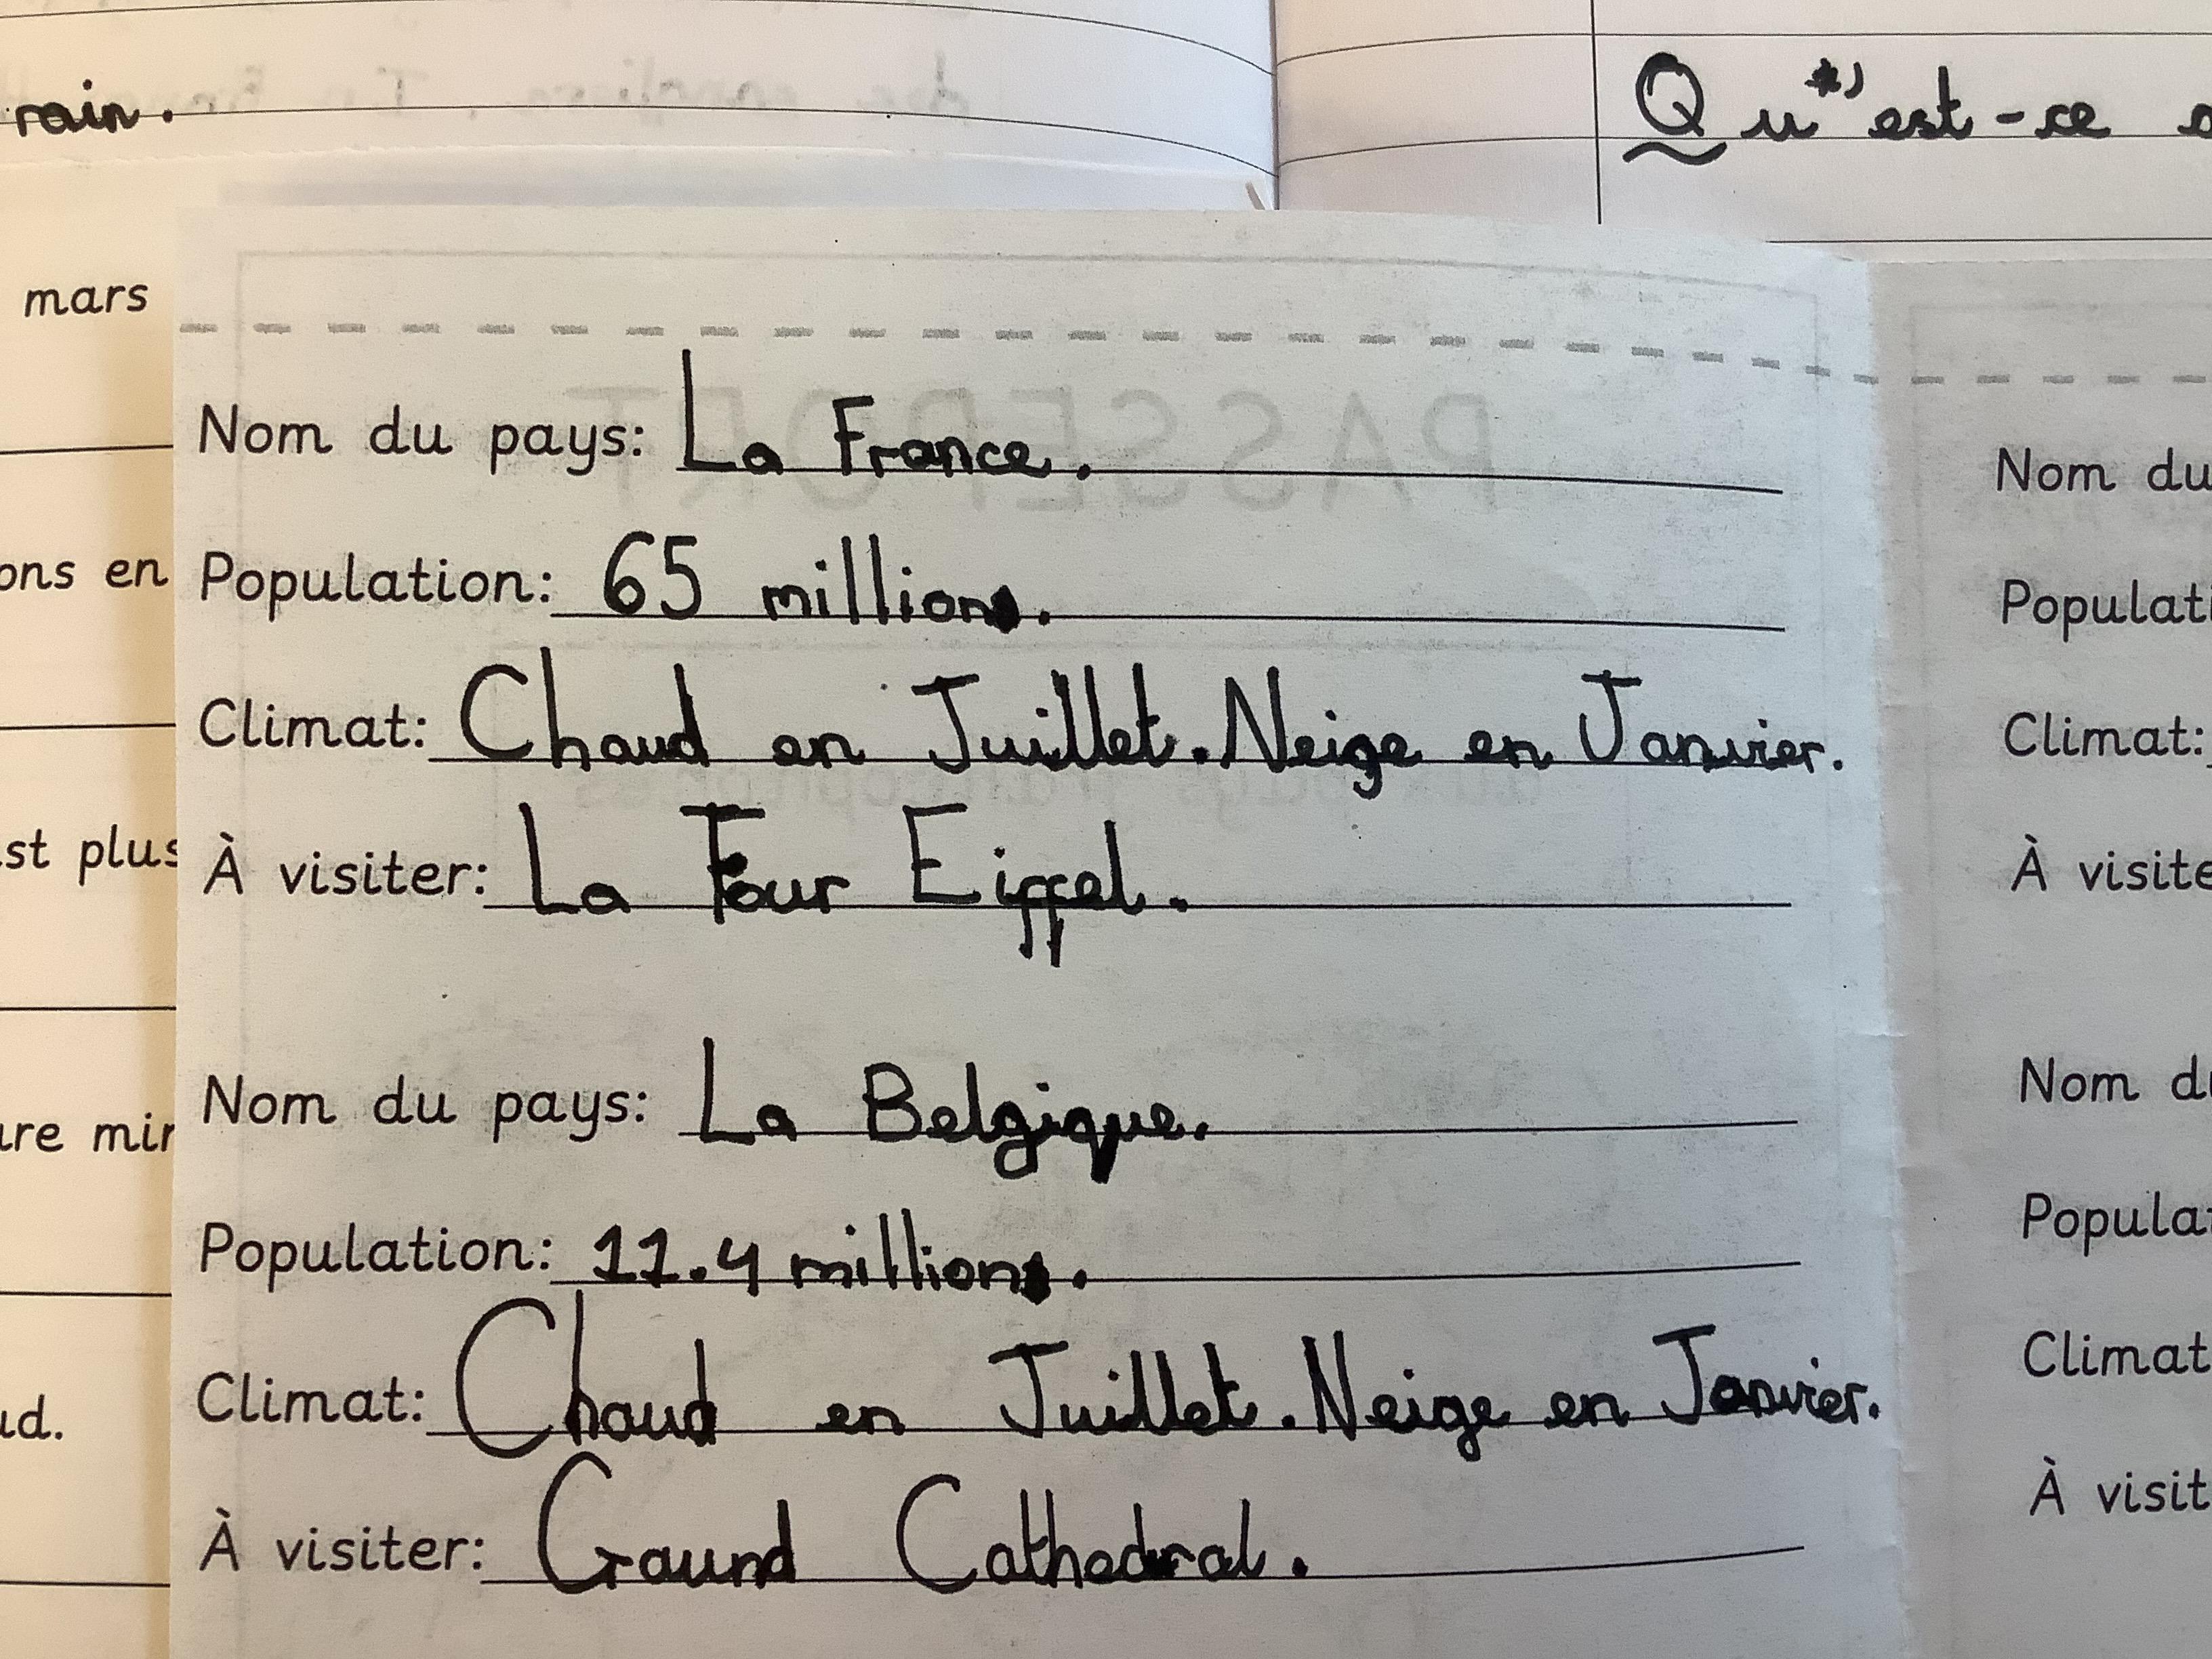 rain.
Qu'est-ce
mars
ons en
st plus
ure mir
ud.
PASSEPORT
Nom du pays: La France.
Population: 65 millions.
Climat: Chaud en Juillet. Neige en Janvier.
À visiter: La Tour Eiffel.
Nom du pays: La Belgique.
Population: 11.4 millions.
Climat: Chaud en Juillet. Neige en Janvier.
À visiter: Gaund Cathedral.
Nom du
Populati
Climat:
À visite
Nom du
Populat
Climat
À visit